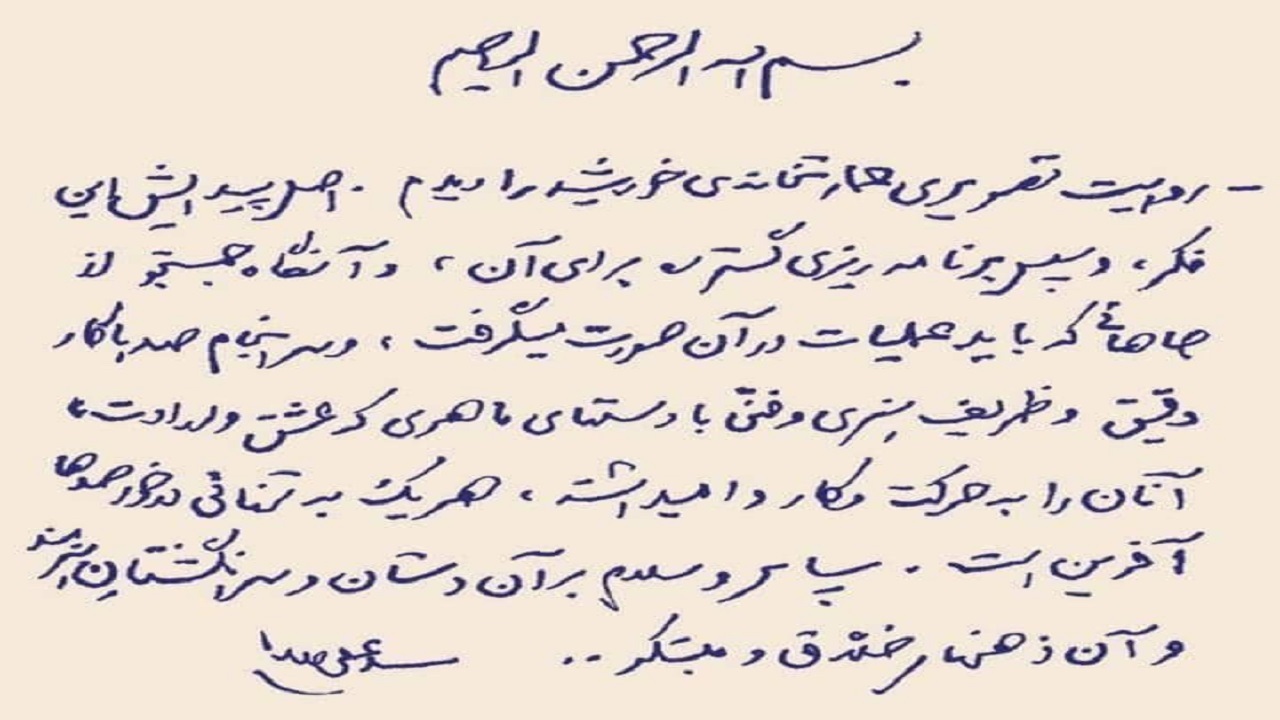 بسم الله الرحمن الرحیم
- روایت تصویری کارستان‌های خورشید را دیدم . اصل پیدایش این
فکر، و سپس برنامه ریزی گسترده برای آن ، و آنگاه جستجو از
جاهائی که باید عملیات در آن صورت میگرفت ، و سرانجام صدها کار
دقیق و ظریف هنری و فنّی با دستهای ماهری که عشق و ارادت،
آنان را به حرکت و کار وامیداشته ، هر یک به تنهائی درخور صدها
آفرین است . سپاس و سلام بر آن دستان و سرانگشتان هنرمند
و آن ذهنهای خلّاق و مبتکر ..